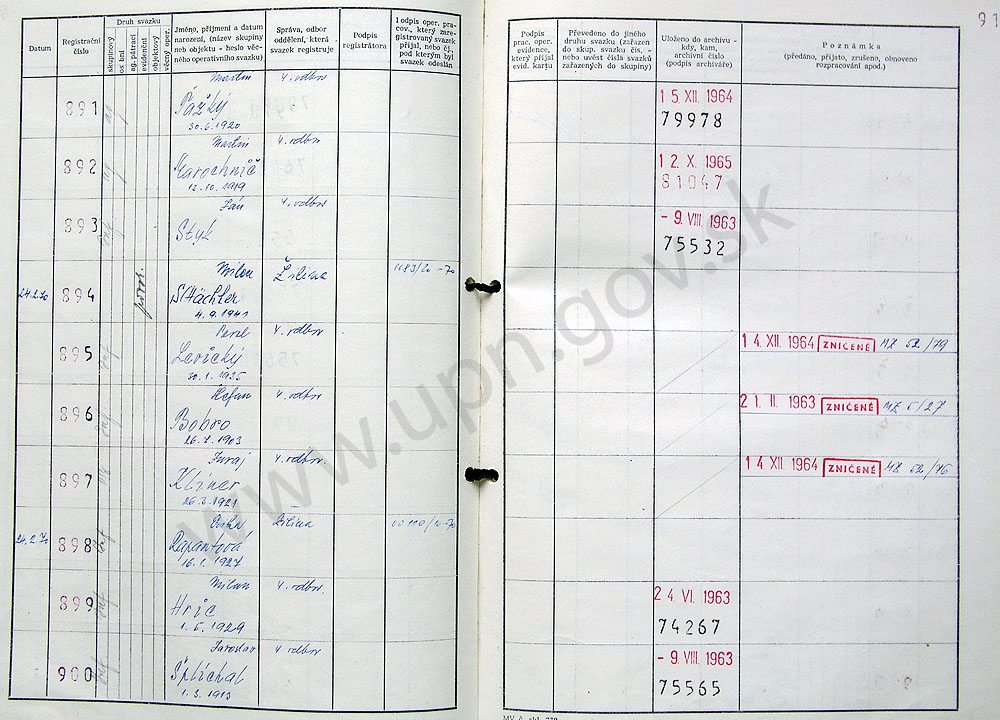 91
Datum
Registrační číslo
Druh svazku
skupinový
osobní
ag. pátrací
evidenční
objektový
věcný oper.
Jméno, příjmení a datum narození, (název skupiny neb objektu - heslo věcného operativního svazku)
Správa, odbor oddělení, která svazek registruje
Podpis registrátora
Podpis oper. pracov., který zaregistrovaný svazek přijal, nebo čj., pod kterým byl svazek odeslán
Podpis prac. oper. evidence, který přijal evid. kartu
Převedeno do jiného druhu svazku (zařazen do skup. svazku čís. - nebo uvést čísla svazků zařazených do skupiny)
Uloženo do archivu - kdy, kam, archivní číslo (podpis archiváře)
Poznámka
(předáno, přijato, zrušeno, obnoveno rozpracování apod.)
891 Martin 4. odbor
30.6.1920
15. XII. 1964
79978
892 Martin 4. odbor
12.10.1919
12. X. 1965
81047
893 Ján 4. odbor
Styk
- 9. VIII. 1963
75532
24.2.70 894 Milan Žilina
Stächler
4.9.1941
895 Pavel 4. odbor
Levický
30.1.1925
14. XII. 1964 ZNIČENÉ MZ 52/79
896 Štefan 4. odbor
Bobro
1903
21. II. 1963 ZNIČENÉ MZ 5/27
897 Juraj 4. odbor
Kliner
1921
14 XII. 1964 ZNIČENÉ MZ 52/76
24.2.70 898 Žilina
Rapantová
16.1.1927
899 Milan 4. odbor
Hric
1.5.1929
24. VI. 1963
74267
900 Jaroslav 4. odbor
Šplíchal
1.3.1913
- 9. VIII. 1963
75565
www.upn.gov.sk